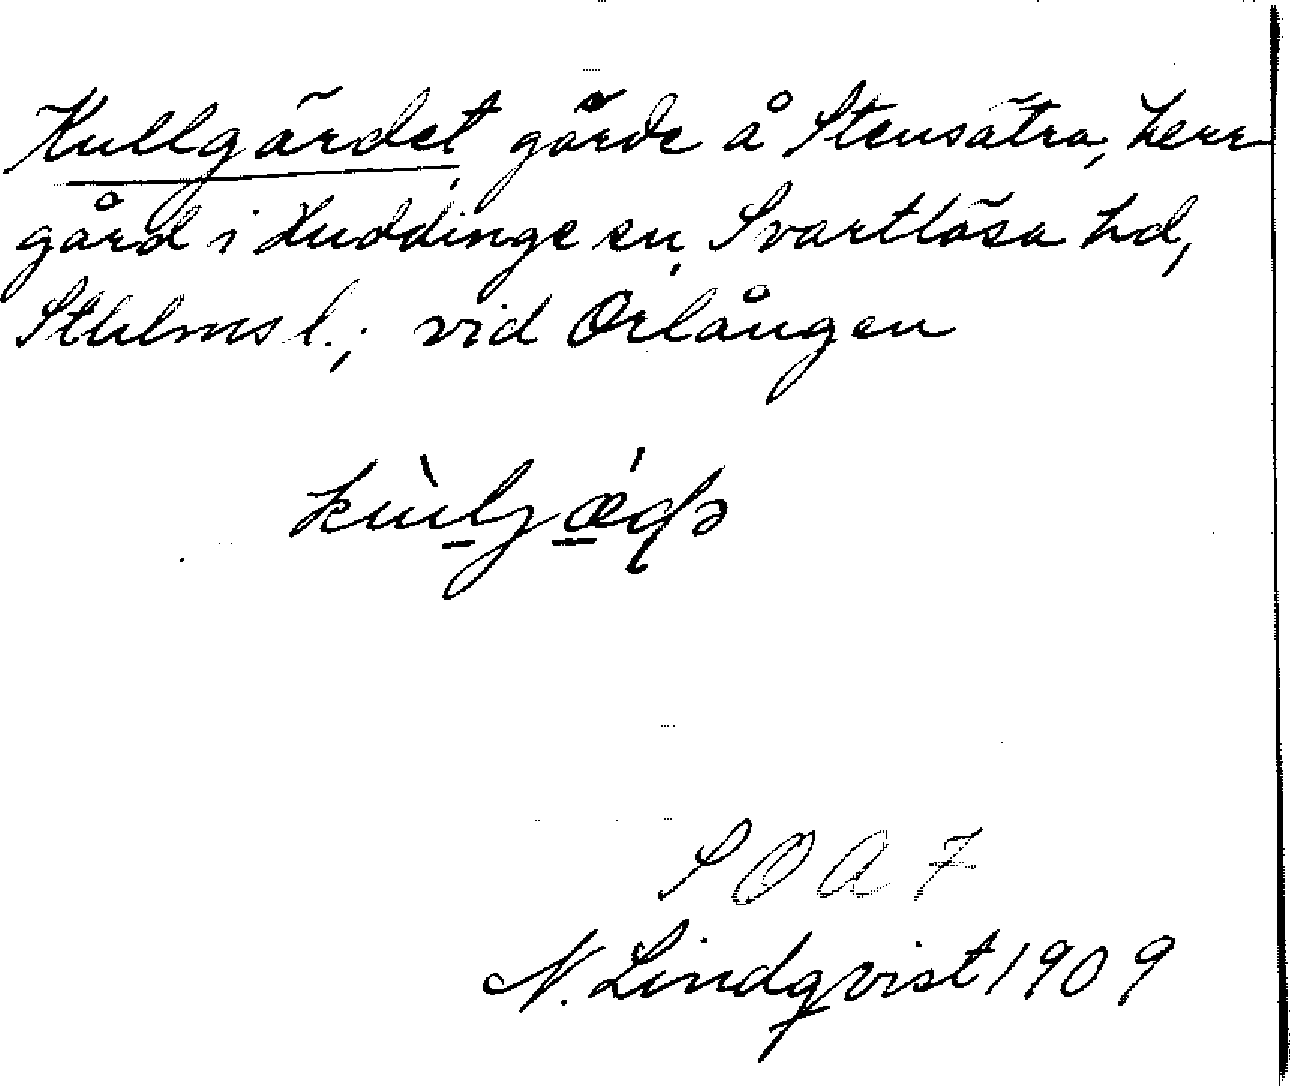 Kullgärdet, gärde å Stensätra, herr
gård i Huddinge sn, Svartlösa hd,
Sthlms l.; vid Orlången
S O A 7
N. Lindqvist 1909